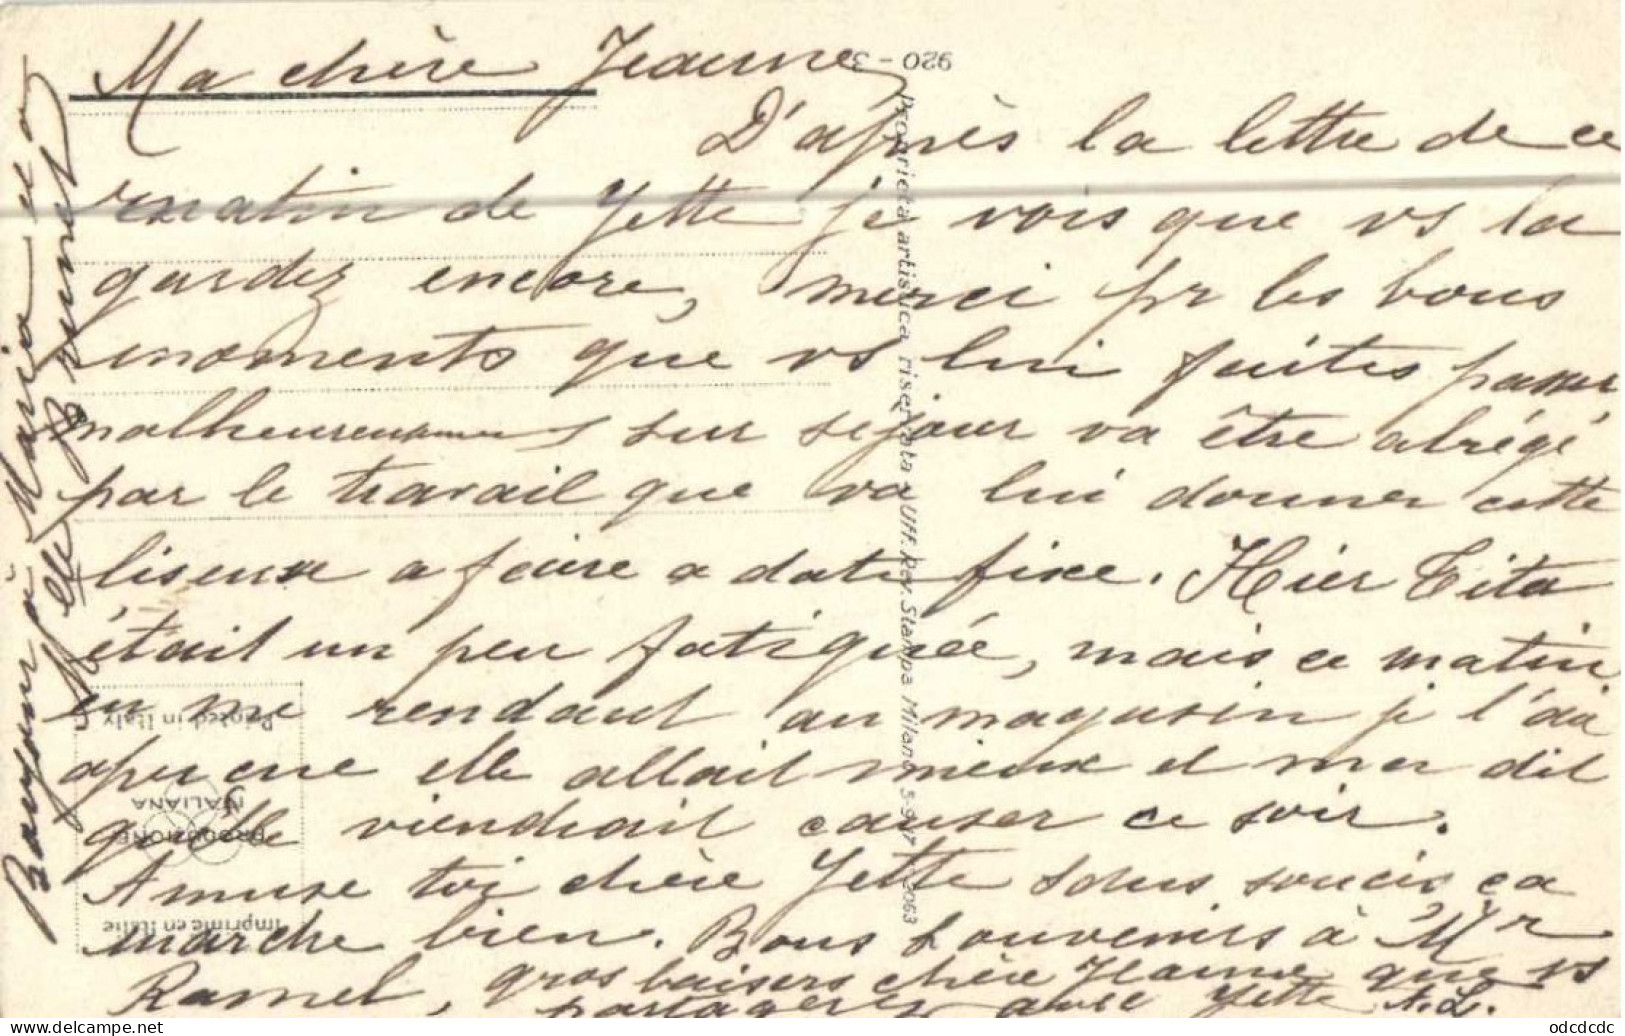 Ma chère Jeanne
D'après la lettre de ce
matin de Yette je vois que vs la
gardez encore, merci pr les bons
moments que vs lui faites passer
malheureusement son séjour va être abrégé
par le travail que va lui donner cette
liseuse a faire a date fixe. Hier Tita
était un peu fatiguée, mais ce matin
en me rendant au magasin je l'ai
aperçue elle allait mieux et m'a dit
qu'elle viendrait causer ce soir.
Amuse toi chère Yette sans soucis ça
marche bien. Bons souvenirs à Mr
Ramel, gros baisers chère Jeanne que vs
partagerez avec Yette A.L.
Bonjour à Maria et à
Melle
920 - 3
Proprietà artistica riservata Uff. Rev. Stampa Milano 5-9-17 2063
Printed in Italy
PRODUZIONE
ITALIANA
Imprimé en Italie
odcdcdc